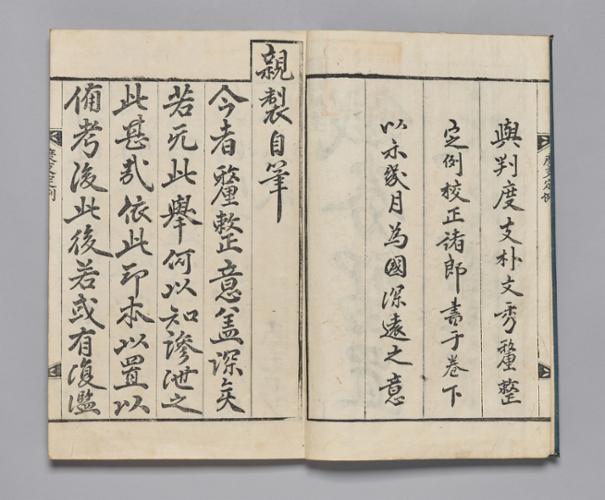 與判度支朴文秀釐整
定例校正諸郎書于卷下
以示幾月為國深遠之意
親製自筆
今者釐整意盖深矣
若无此舉何以知滲泄之
此甚哉依此印本以置以
備考後此後若或有復濫
度支定例